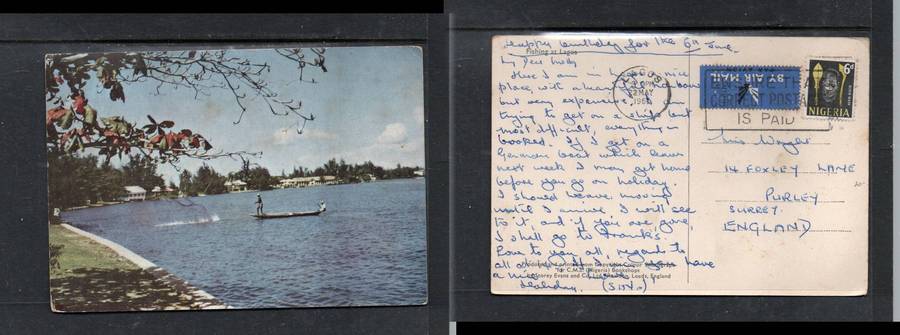 Happy birthday for the 6th June.
Fishing at Lagos
My Dear
Here I am in nice
place, with a
but very expensive.
trying to get on a ship but
most difficult, everything is
booked. If I get on a
German boat which leaves
next week I may get home
before you go on holiday.
I should leave moving
until I arrive, I will see
to it, and if you are gone,
I shall go to Frank's.
Love to you all, regards to
all
for C.M.S. (Nigeria) Bookshops
have
a nice
Evans and Co. Leeds, England
Holiday.
LAGOS
22 MAY
BY AIR MAIL
PAR AVION
CORRECT POSTAGE
IS PAID
6d
NIGERIA
Miss Wright
14 FOXLEY LANE
PURLEY
SURREY.
ENGLAND